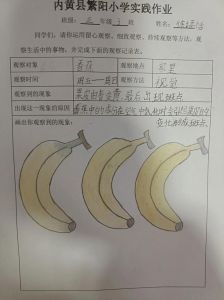 内黄县繁阳小学实践作业
班级：三年级3班 姓名：
同学们，请你运用留心观察，细致观察，持续观察等方法，观
察生活中的事物，并完成下面的观察记录表。
观察对象 香蕉 观察地点 家里
观察时间 周五——周日 观察方法 视觉
观察到的现象 果皮由青变黄，最后出现斑点
出现这一现象的原因 香蕉中的
画出你观察到的现象： 变化形成斑点。